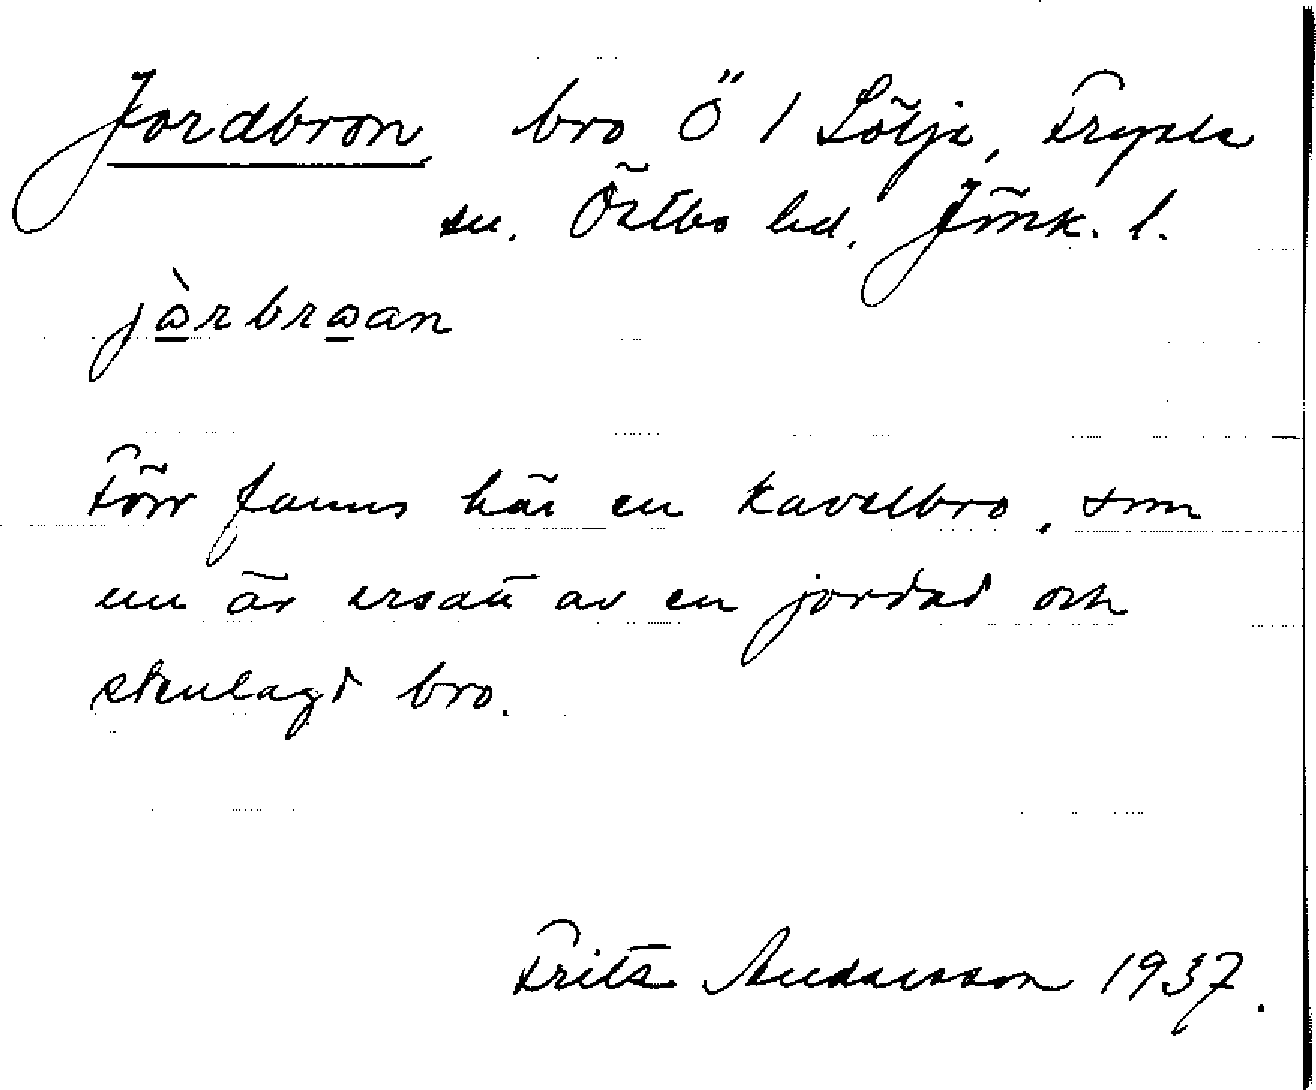 Jordbron, bro Ö 1 Lölja, Fryele
sn. Östbo hd. Jönk. l.
jàrbraan
Förr fanns här en kavelbro, som
nu är ersatt av en jordad och
stenlagd bro.
Frits Andersson 1937.